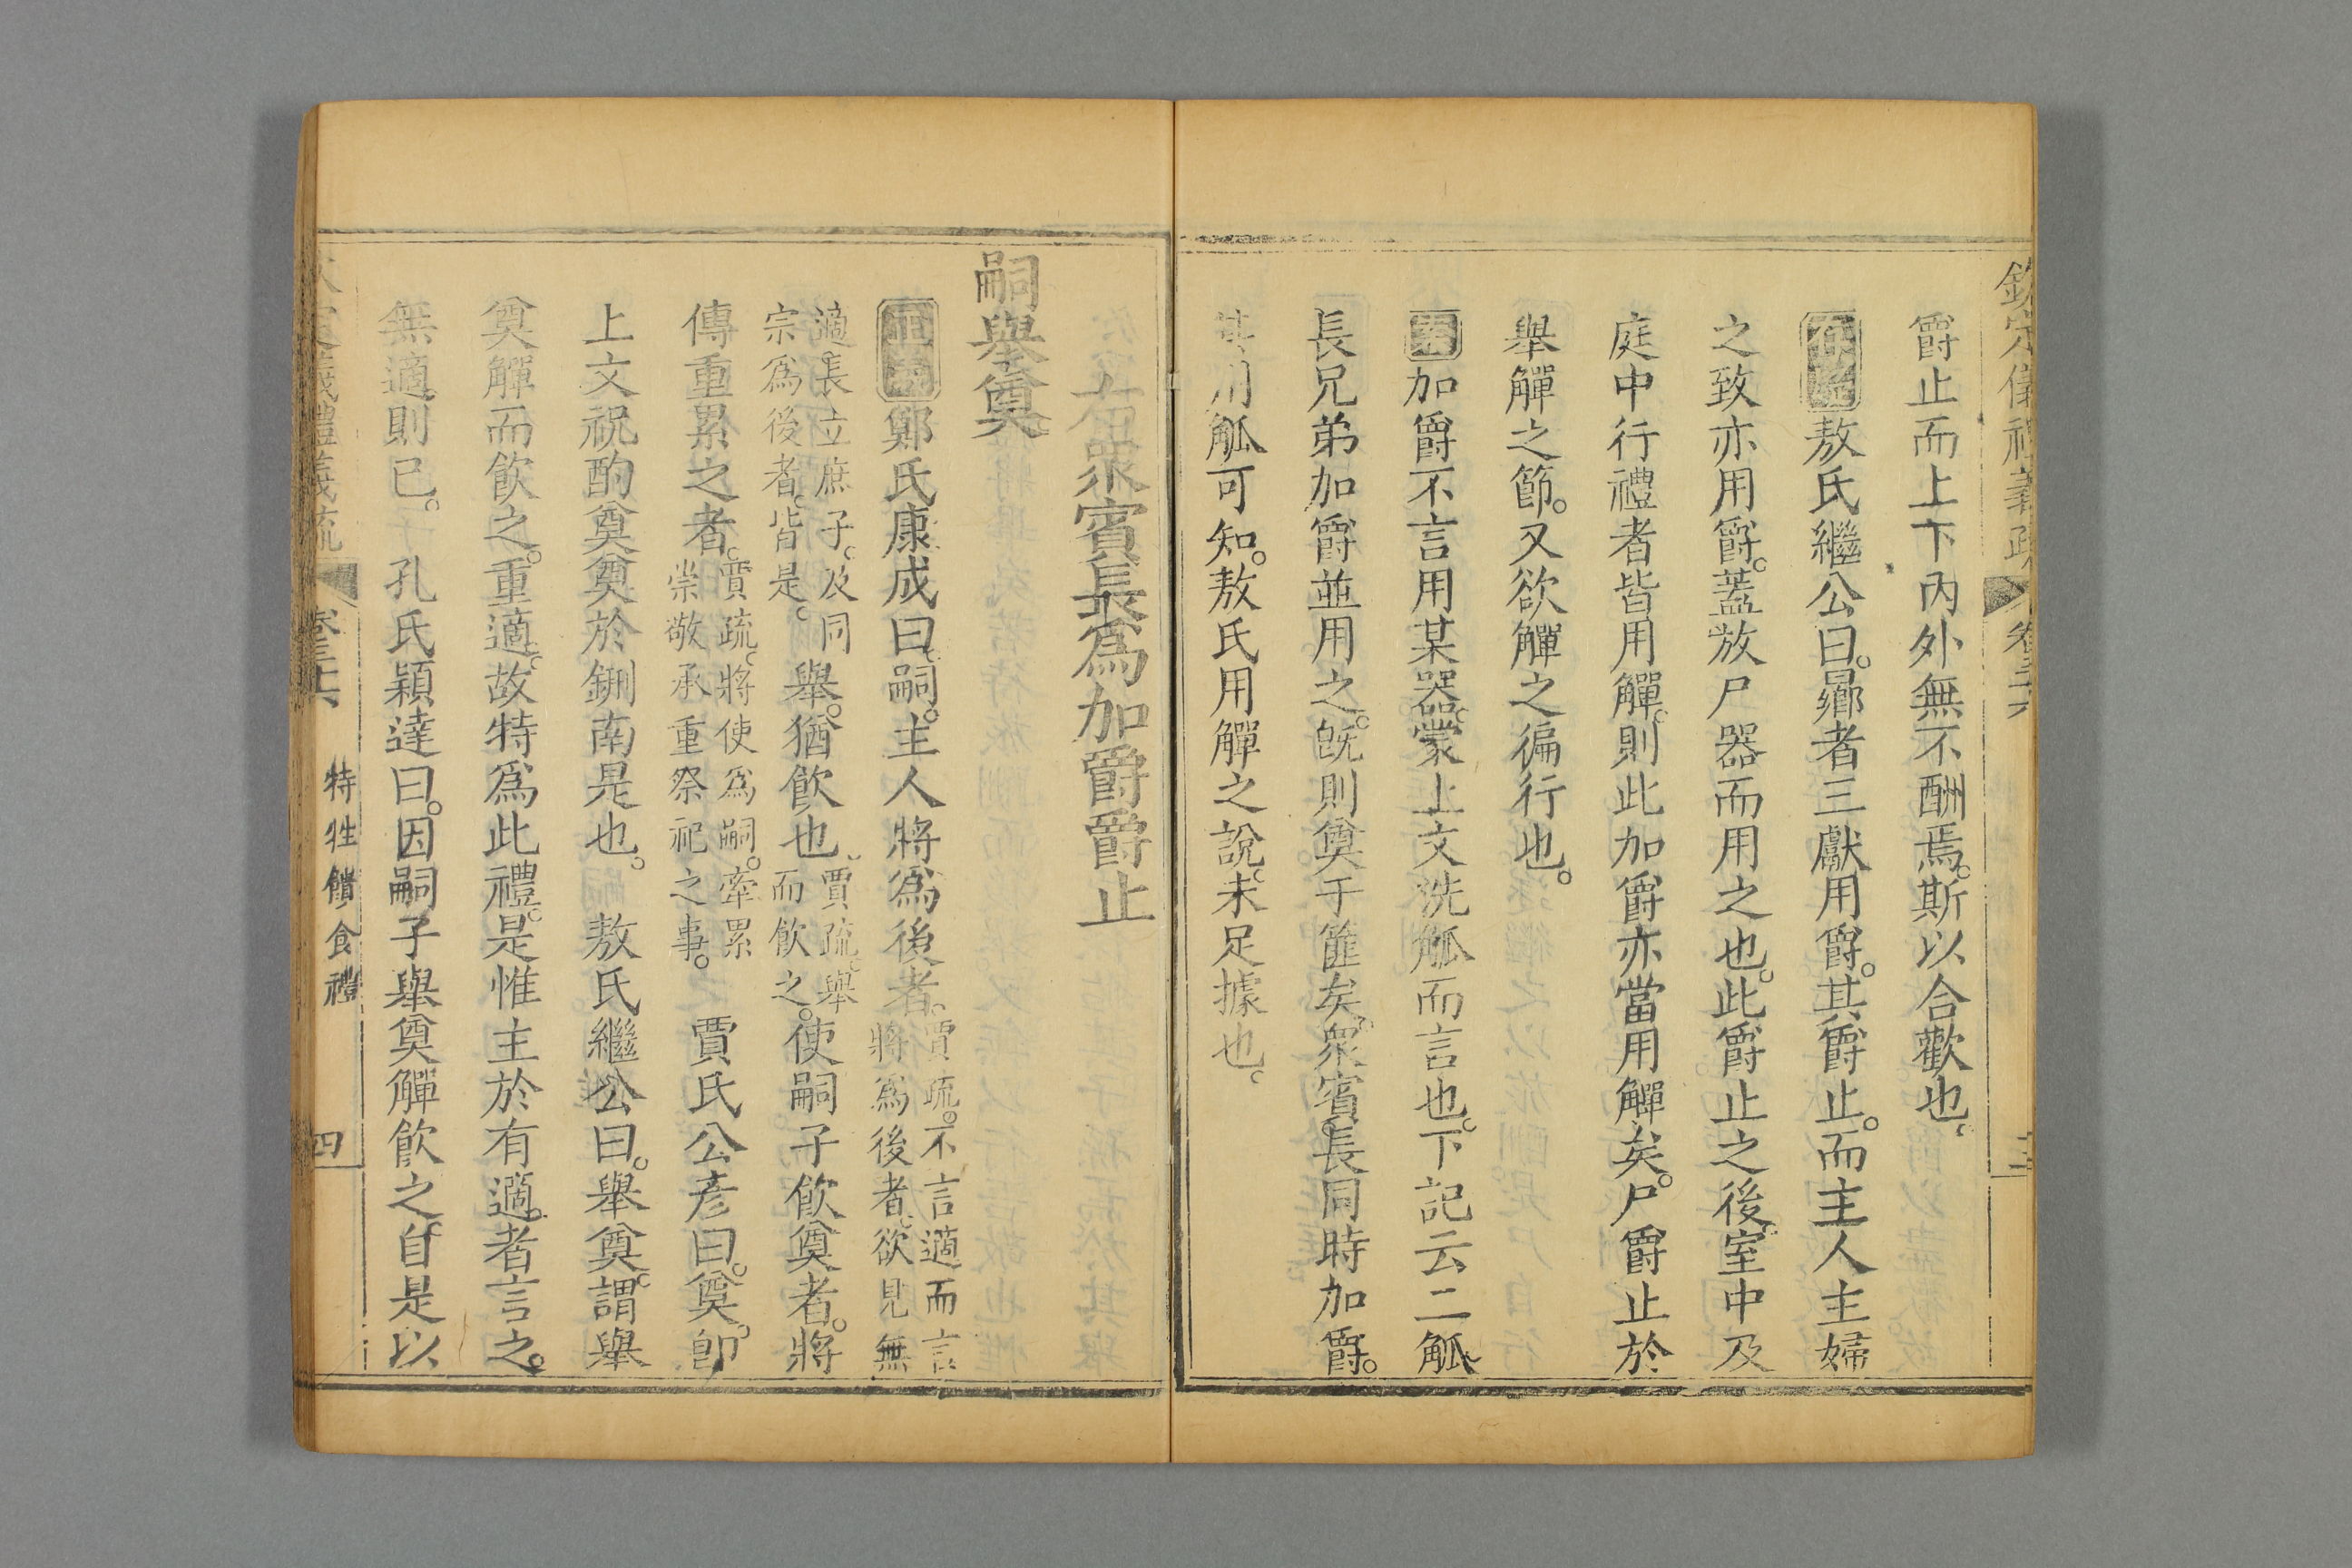 欽定儀禮義疏 卷三十六
爵止而上下內外無不酬焉。斯以合歡也。
存疑敖氏繼公曰。曏者三獻用爵。其爵止。而主人主婦
之致亦用爵。蓋放尸器而用之也。此爵止之後。室中及
庭中行禮者皆用觶。則此加爵亦當用觶矣。尸爵止於
舉觶之節。又欲觶之徧行也。
案加爵不言用某器。蒙上文洗觚而言也。下記云二觚
長兄弟加爵並用之。旣則奠于篚矣。衆賓長同時加爵。
其用觚可知。敖氏用觶之說。未足據也。
衆賓長爲加爵爵止
嗣舉奠
正義鄭氏康成曰。嗣。主人將爲後者。賈疏。不言適而言
將爲後者。欲見無
適長立庶子。及同
宗爲後者。皆是。舉。猶飲也。賈疏。舉
而飲之。使嗣子飲奠者。將
傳重累之者。賈疏。將使爲嗣。牽累
崇敬承重祭祀之事。賈氏公彥曰。奠。卽
上文祝酌奠奠於鉶南是也。敖氏繼公曰。舉奠。謂舉
奠觶而飲之。重適。故特爲此禮。是惟主於有適者言之。
無適則已。孔氏穎達曰。因嗣子舉奠觶飲之。自是以
欽定儀禮義疏 卷三十六 特牲饋食禮 四